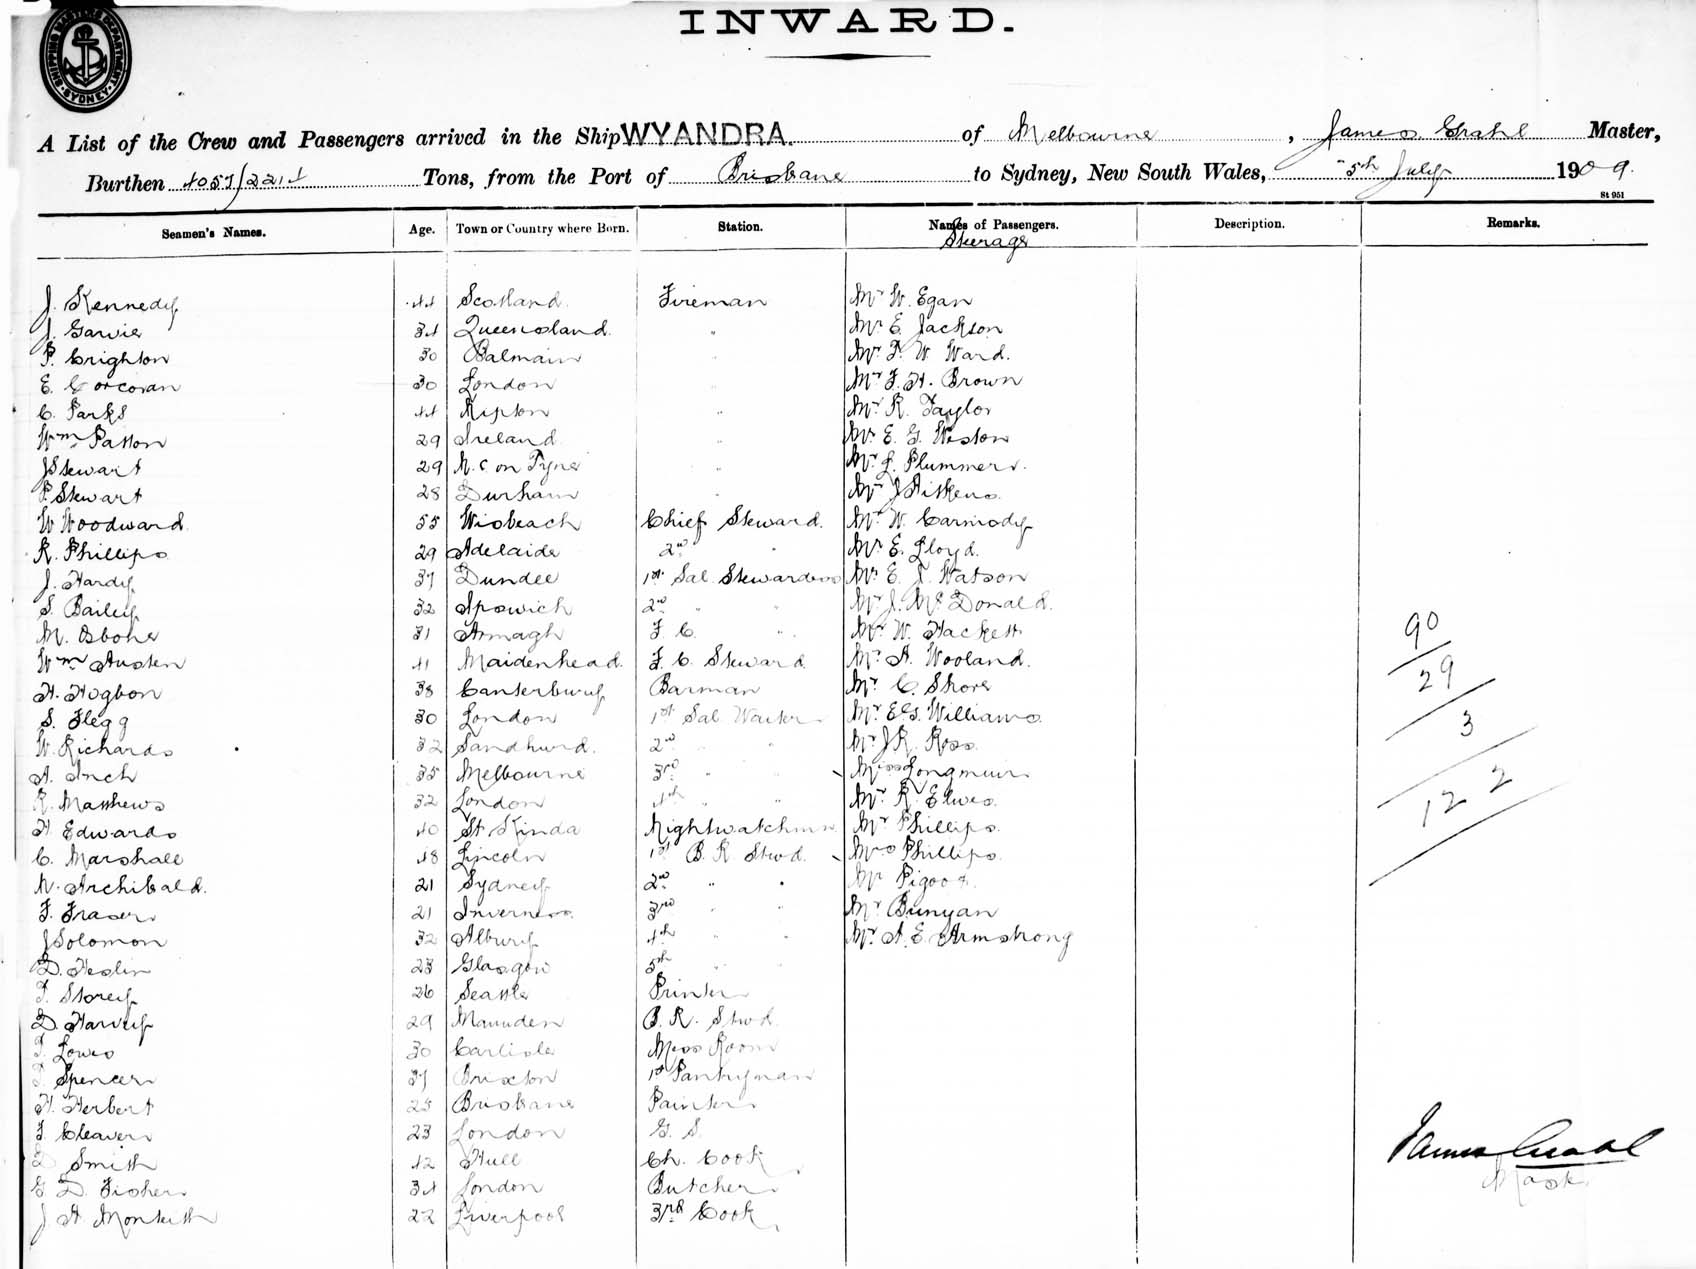 SHIPPING MASTERS DEPARTMENT SYDNEY
INWARD.
A List of the Crew and Passengers arrived in the Ship WYANDRA. of Melbourne, James Grahl Master,
Burthen 4057/2214 Tons, from the Port of Brisbane to Sydney, New South Wales, 5th July 1909.
St 951
Seamen's Names. Age. Town or Country where Born. Station. Names of Passengers. Description. Remarks.
Steerage
J. Kennedy 44 Scotland. Fireman Mr W. Egan
J. Garvie 34 Queensland. " Mr E. Jackson
P. Crighton 30 Balmain " Mr F. W. Ward.
E. Corcoran 30 London " Mr F. H. Brown
C. Parks 44 Ripton " Mr R. Taylor
Wm Patton 29 Ireland. " Mr E. G. Weston
J Stewart 29 N. C on Tyne " Mr L. Plummer.
P. Stewart 28 Durham " Mr J Aitkens.
W Woodward. 55 Wisbeach Chief Steward. Mr W. Carmody
R. Phillips 29 Adelaide 2nd " Mr E. Lloyd.
J. Hardy 37 Dundee 1st Sal Stewardess Mr E. T. Watson
S. Bailey 32 Ipswich 2nd " " Mr J. McDonald.
M. Osbone 31 Armagh F. C. " Mr W. Hackett
Wm Austen 41 Maidenhead. F. C. Steward Mr A. Wooland.
H. Hogbon 38 Canterbury Barman Mr C. Shore
S. Flegg 30 London 1st Sal Waiter Mr E. G. Williams.
W. Richards 32 Sandhurd. 2nd " " Mr J R. Ross.
A. Inch 35 Melbourne 3rd " " Miss Longmuir
R. Matthews 32 London 4th " " Mr R. Elwes.
H Edwards 40 St Kinda Nightwatchmn. Mr Phillips.
C. Marshall 48 Lincoln 1st B. R Stwd. Mrs Phillips.
N. Archibald. 21 Sydney 2nd " " Mr Pigott.
F. Fraser 21 Inverness. 3rd " " Mr Bunyan
J Solomon 32 Albury 4th " " Mr A. E. Armstrong
D. Heslin 23 Glasgow 5th " "
T. Storey 26 Seattle Printer
D. Harvey 29 Manuden B. R. Stwd.
T. Lowes 30 Carlisle Mess Room
T. Spencer 37 Brixton 1st Pantryman
H. Herbert 25 Brisbane Painter
F. Cleaver 23 London G. S.
D Smith 42 Hull Ch. Cook
G D. Fisher 34 London Butcher
J. H. Monteith 22 Liverpool 3rd Cook
90
29
3
122
James Grahl
Mast.